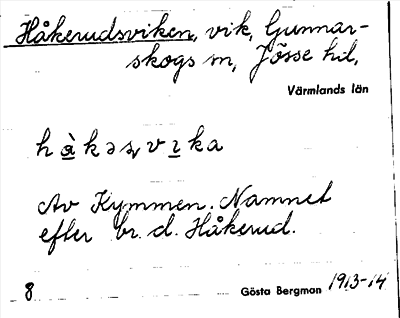 Håkerudsviken, vik, Gunnar-
skogs sn, Jösse hd,
Värmlands län
Av Kymmen. Namnet
efter br. d. Håkerud.
8 Gösta Bergman 1913-14